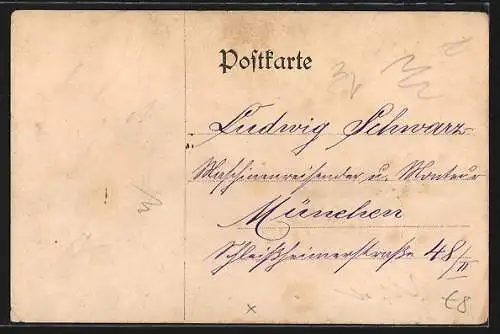 Postkarte
Ludwig Schwarz
Maschinenreisender u. Monteur
München
Schleißheimerstraße 48/II
€8